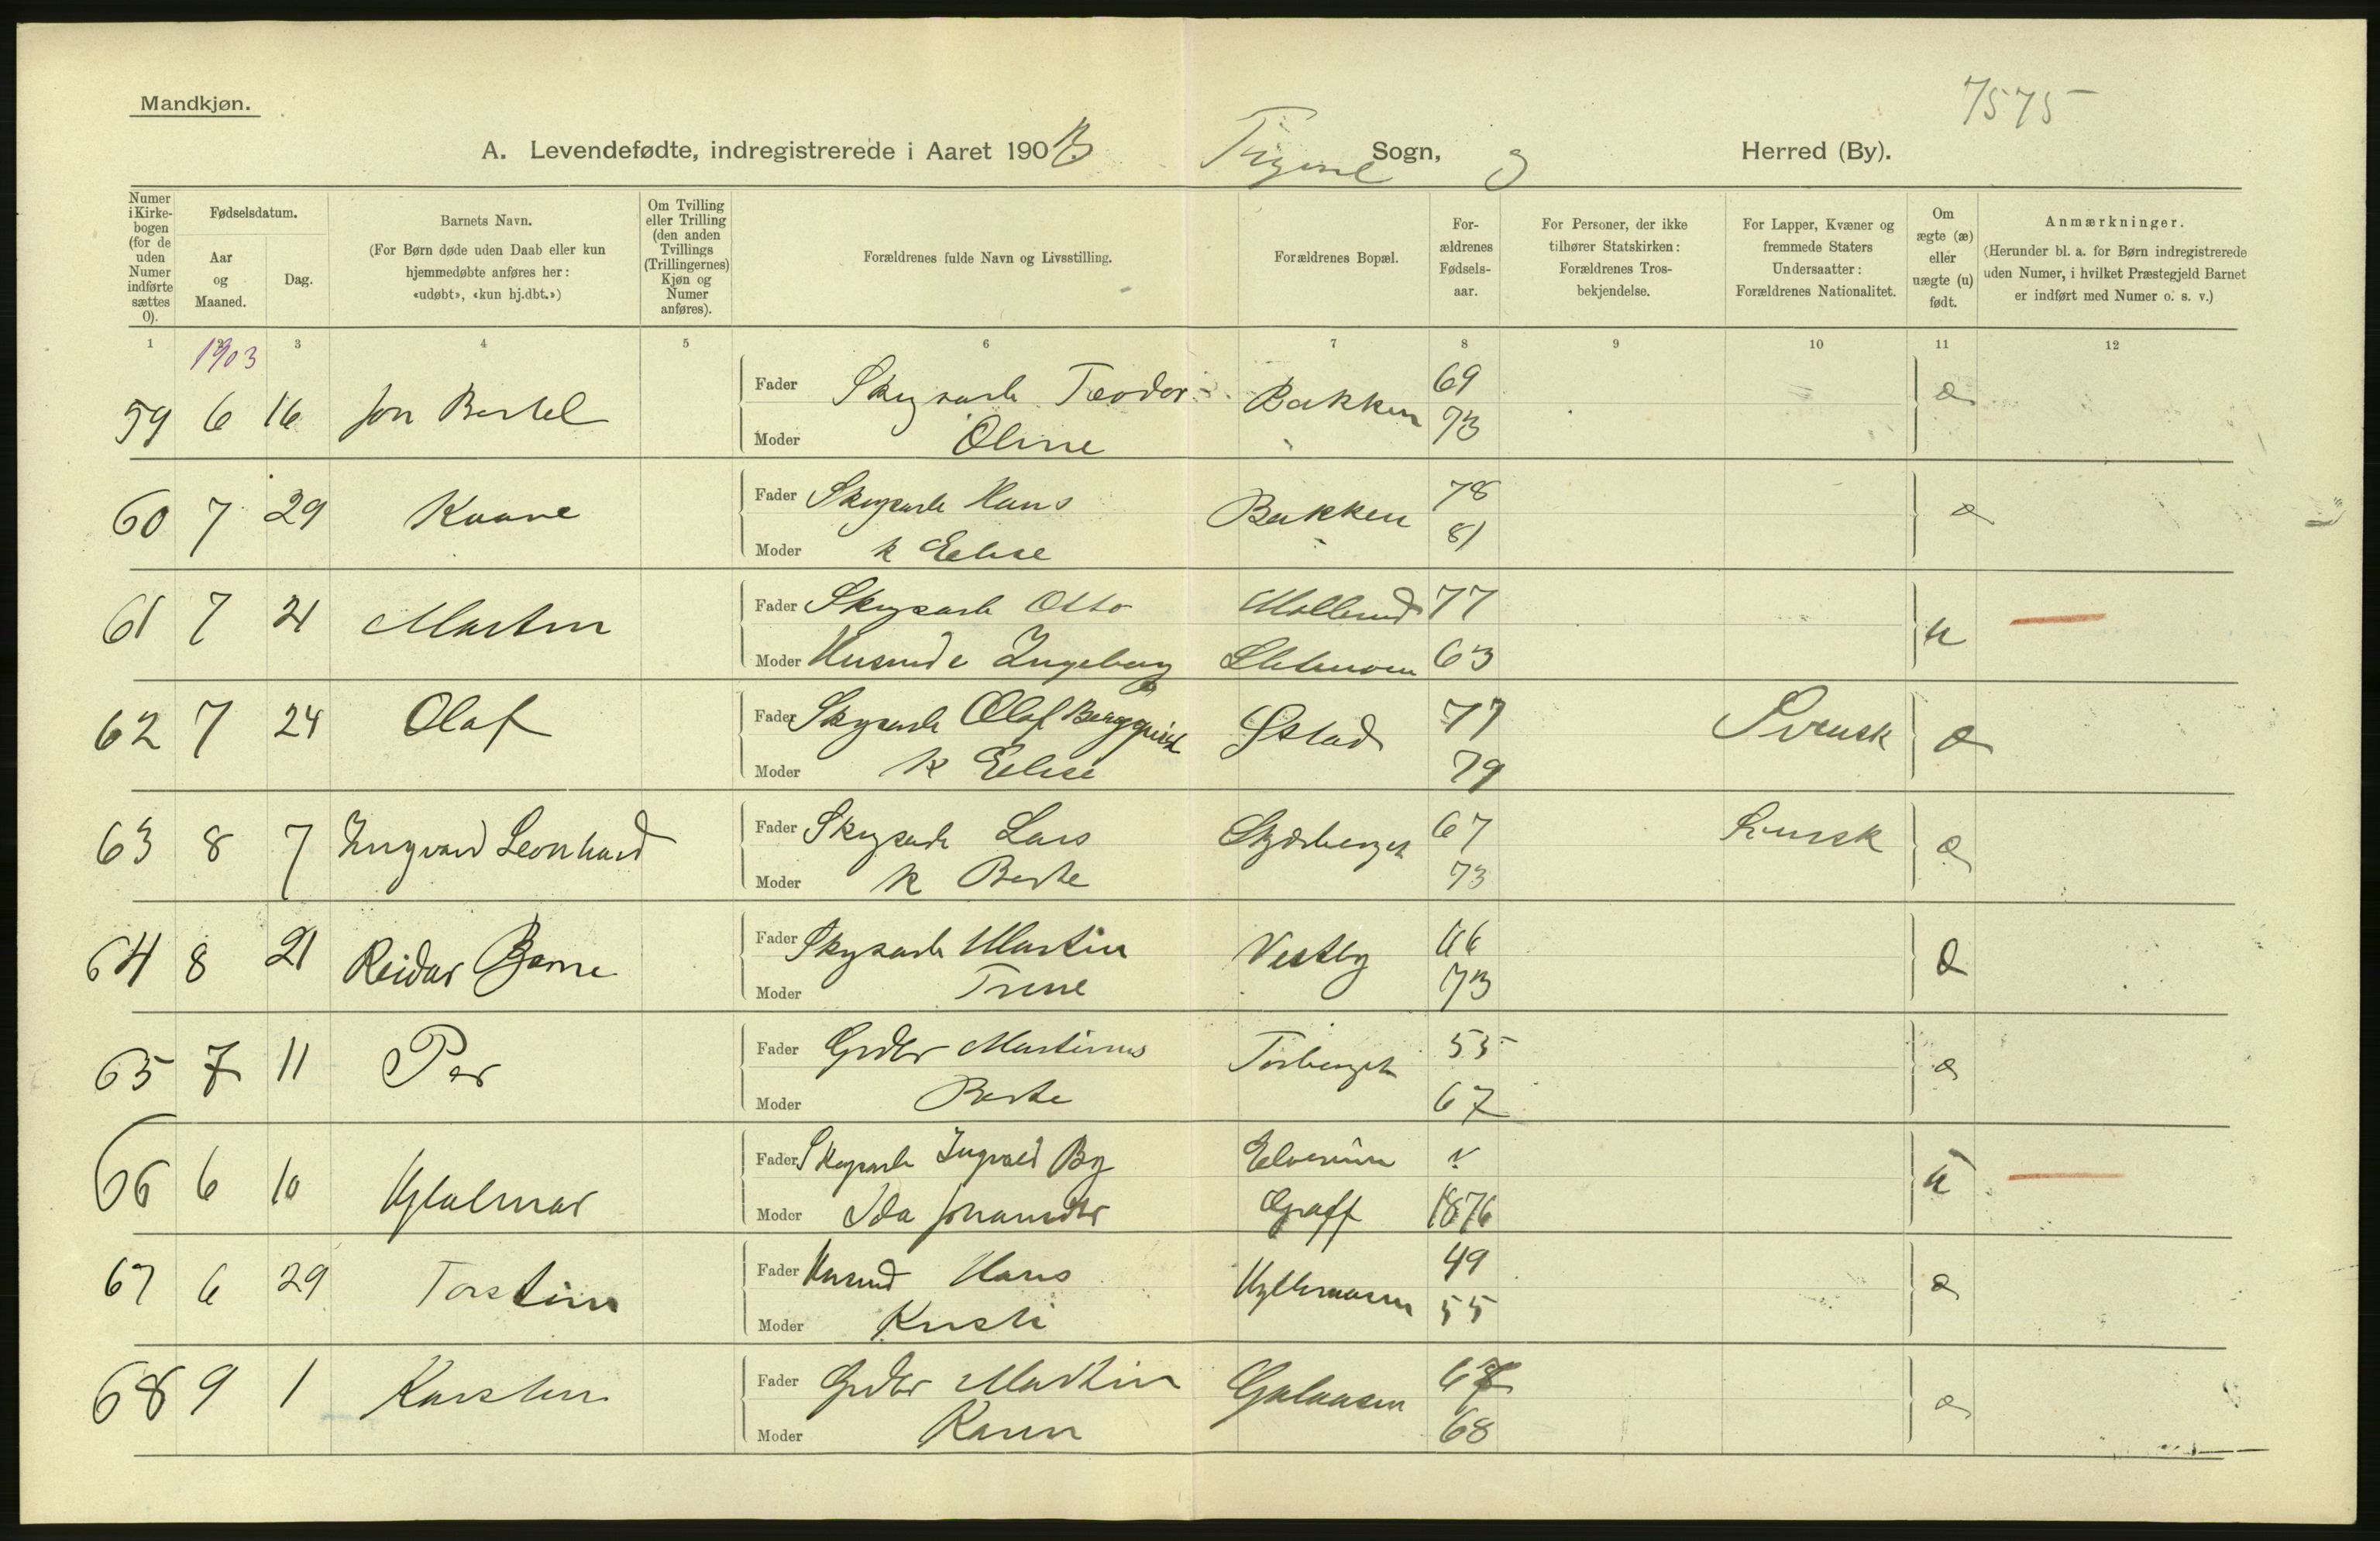 7575
Mandkjøn.
A. Levendefødte, indregistrerede i Aaret 1903 Trysil Sogn, Herred (By).
Numer i Kirkebogen (for de uden Numer indførte sættes 0).
Fødselsdatum.
Aar og Maaned.
Dag.
Barnets Navn.
(For Børn døde uden Daab eller kun hjemmedøbte anføres her: «udøbt», «kun hj.dbt.»)
Om Tvilling eller Trilling (den anden Tvillings (Trillingernes) Kjøn og Numer anføres).
Forældrenes fulde Navn og Livsstilling.
Forældrenes Bopæl.
Forældrenes Fødselsaar.
For Personer, der ikke tilhører Statskirken: Forældrenes Trosbekjendelse.
For Lapper, Kvæner og fremmede Staters Undersaatter: Forældrenes Nationalitet.
Om ægte (æ) eller uægte (u) født.
Anmærkninger.
(Herunder bl. a. for Børn indregistrerede uden Numer, i hvilket Præstegjeld Barnet er indført med Numer o. s. v.)
1 2 3 4 5 6 7 8 9 10 11 12
1903
59 6 16 Jon Bertel Fader Skogsarb Teodor Bakken 69 æ
Moder Oline " 73
60 7 29 Kaare Fader Skogsarb Hans Bakken 78 æ
Moder k Eelise " 81
61 7 21 Martin Fader Skogsarb Otto 77 u
Moder Ingeborg 63
62 7 24 Olaf Fader Skogsarb Olaf Bergquist Østad 77 Svensk æ
Moder k Eelise 79
63 8 7 Ingvard Leonhard Fader Skogsarb Lars 67 Svensk æ
Moder k Berte 73
64 8 21 Reidar Fader Skogsarb Martin Vestby 66 æ
Moder Trine 73
65 7 11 Per Fader Grdbr Martinus Torberget 55 æ
Moder Berte 67
66 6 10 Hjalmar Fader Skogsarb Ingvald By Elverum ? u
Moder Ida Johansdtr Graff 1876
67 6 29 Torstein Fader Husmd Hans 49 æ
Moder Kristi 55
68 9 1 Karsten Fader Grdbr Martin Galaasen æ
Moder Karen 68